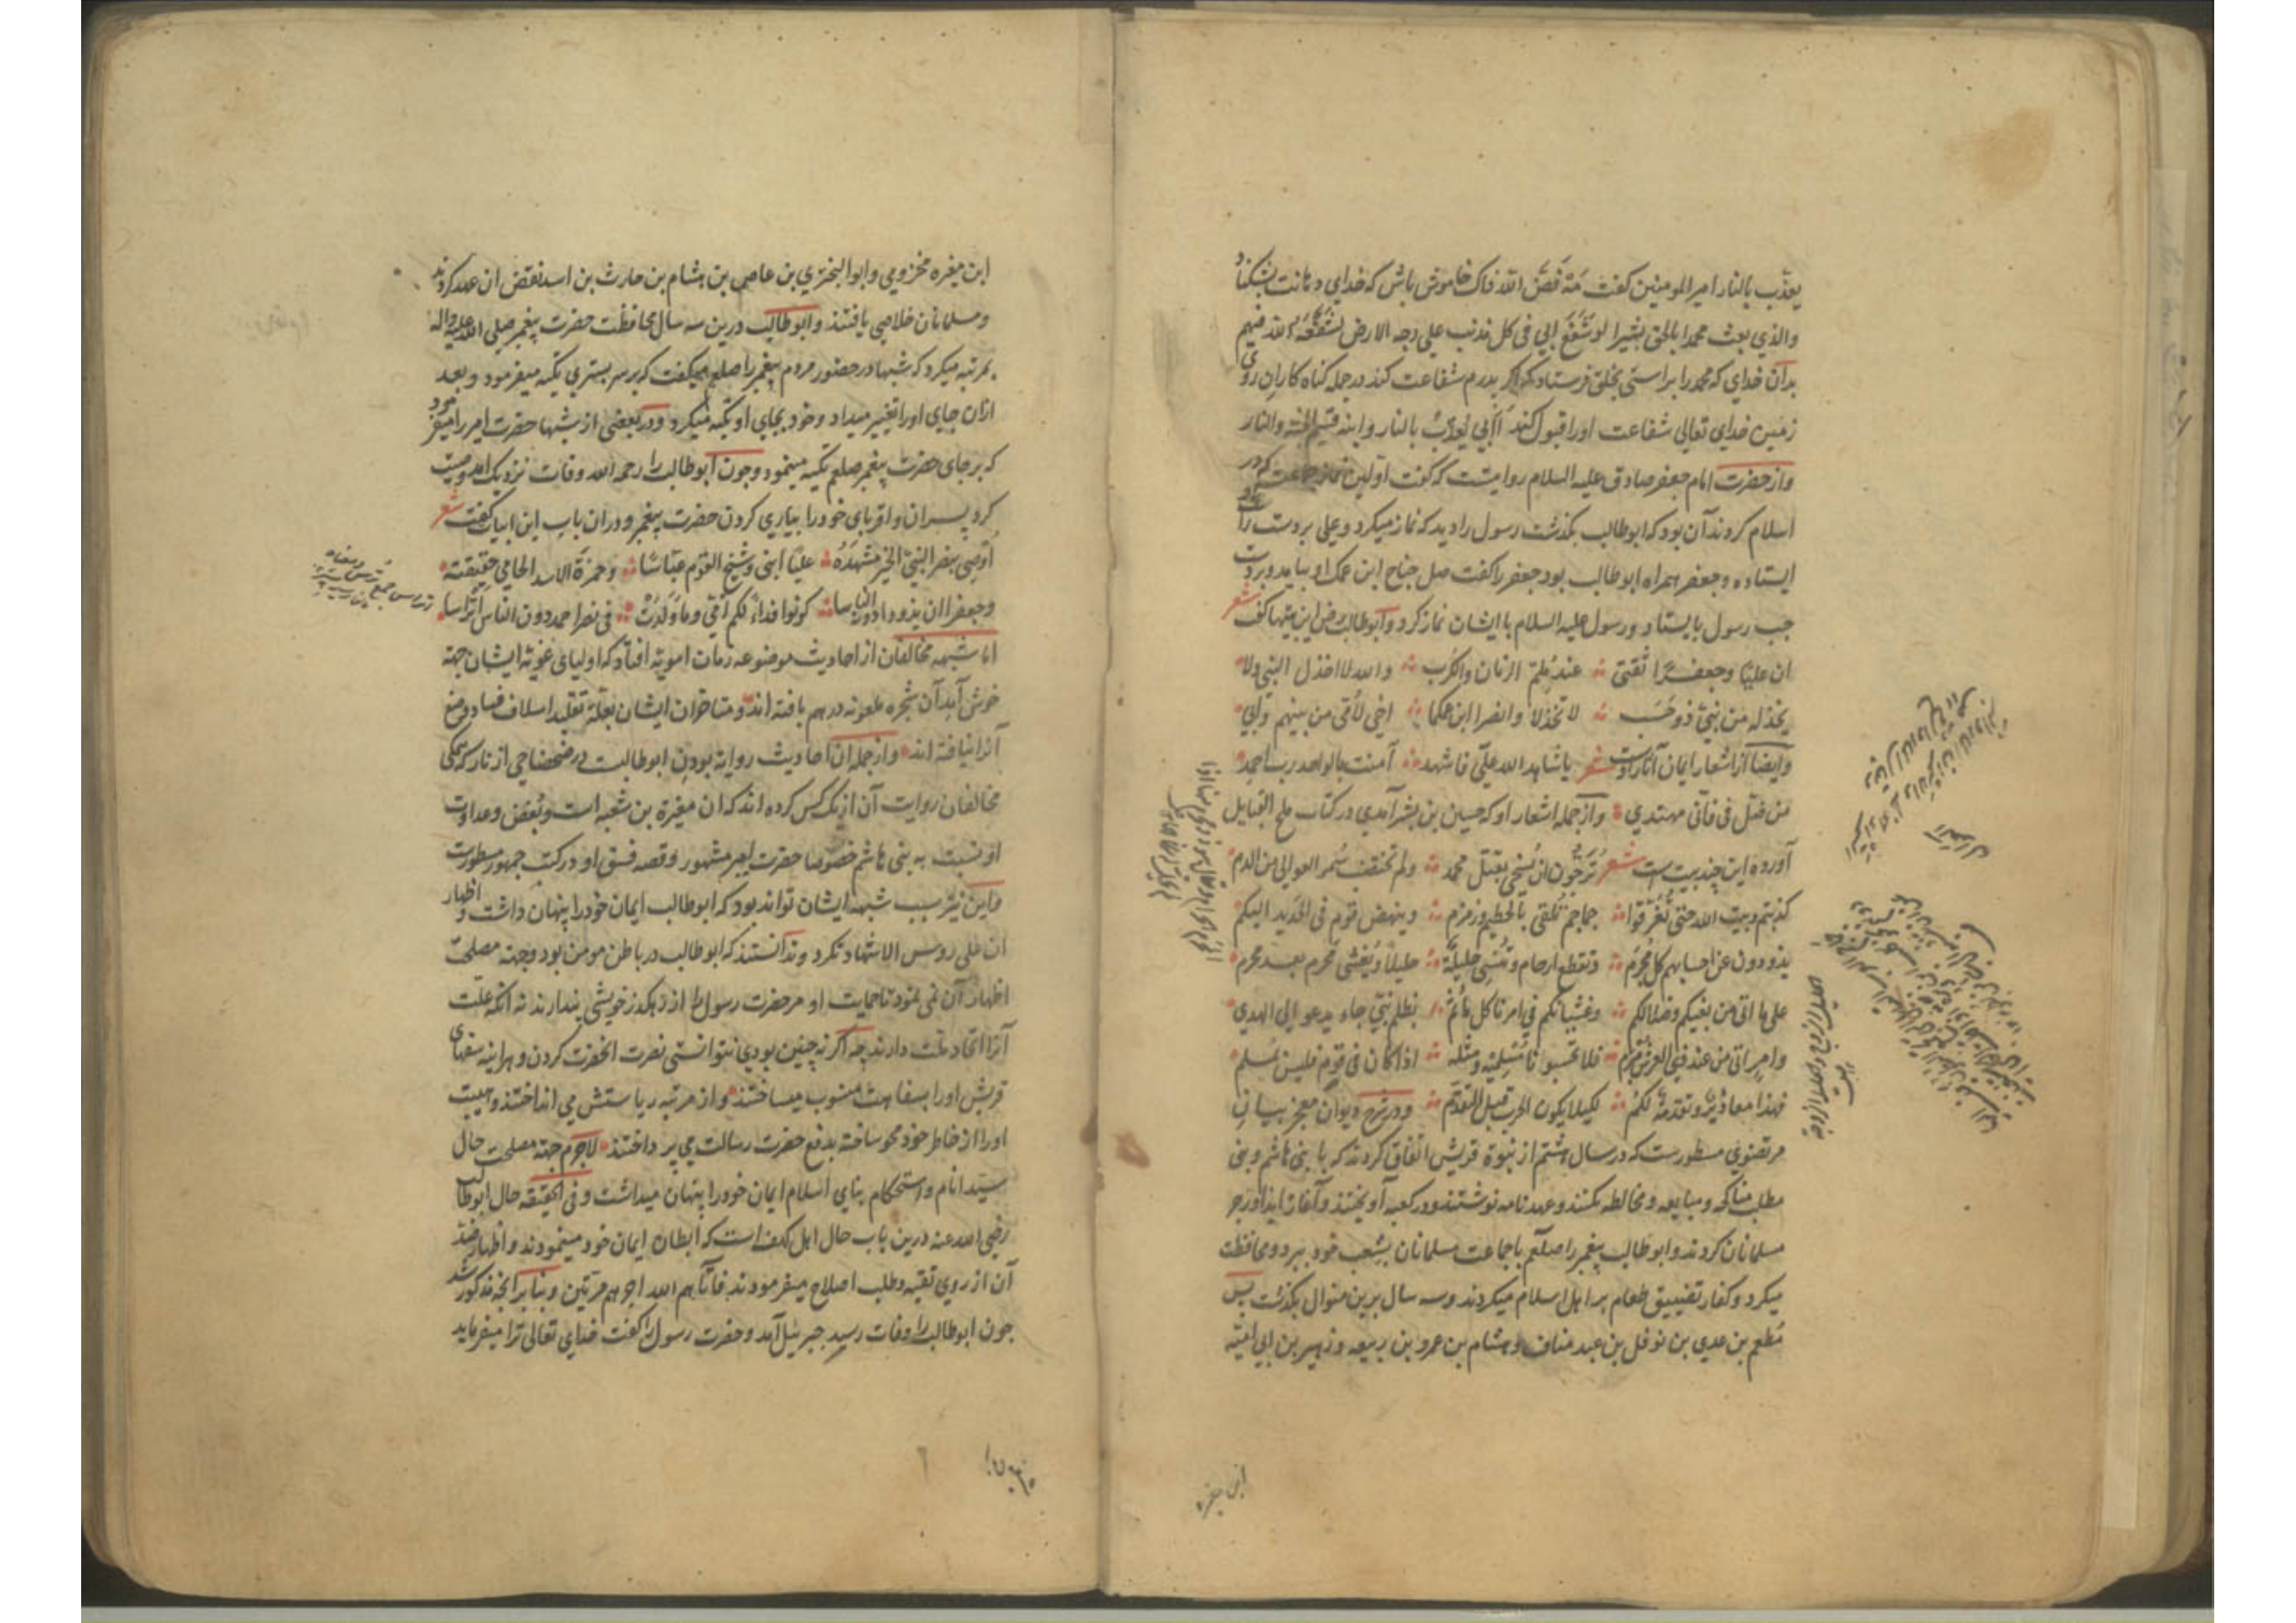 یعذب بالنار امیر المومنین کفت مَه فَضَّ الله فاک خاموش باش که خدای دهانت بشکناد
والذی بعث محمدا بالحق بشیرا لو شَفَعَ ابی فی کل مذنب علی وجه الارض لشَفَّعَهُ الله فیهم
بدان خدای که محمد را براستی بخلق فرستاد که اکر پدرم شفاعت کند در جمله کناه کاران روی
زمین خدای تعالی شفاعت او را قبول کند اَابی یُعذّبُ بالنار و ابنه قسیم الجنة والنار
واز حضرت امام جعفر صادق علیه السلام روایتست که کفت اولین نماز جماعت که در
اسلام کردند آن بود که ابوطالب بکذشت رسول را دید که نماز میکرد و علی بر دست راست
ایستاده و جعفر همراه ابوطالب بود جعفر را کفت صل جناح ابن عمک او بیامد و بر دست
جب رسول بایستاد و رسول علیه السلام با ایشان نماز کرد و ابوطالب رض این بیتها کفت شعر
ان علیّا وجعفرًا ثقتی عند مُلِمّ الزمان والکُرَب والله لا اخذل النبی ولا
یخذله من بنیّ ذو حَسَب لا تخذلا وانصرا ابن عمکما اخی لاُمّی من بینهم وابی
وایضا از اشعار ایمان آثار اوست شعر یا شاهد الله علیّ فاشهد آمنت بالواحد رب احمد
من ضلّ فی فانی مهتدی واز جمله اشعار او که حسین بن بشر آمدی در کتاب ملح القبایل
آورده این چند بیت است شعر تُرَجّون ان نُسخی بقتل محمد ولم تختضب سُمر العوالی من الدم
کذبتم وبیت الله حتی تُعَرّفوا جماجم تُلقی بالحطیم وزمزم وینهض قوم فی الحدید الیکم
یذودون عن احسابهم کل مُجرِم وتقطع ارحام وتنسی حلیلةٌ حلیلا ویُغشی مَحرَم بعد محرم
علی ما اتی من بغیکم وضلالکم وغشیانکم فی امرنا کل مأثم بظلم نبیّ جاء یدعو الی الهدی
وامر اتی من عند ذی العرش مُبرم فلا تحسبونا مُسلمیه ومثله اذا کان فی قوم فلیس بمُسلم
فهذا معاذیرٌ وتقدمةٌ لکم لکیلا یکون الحرب قبل التقدّم ودر شرح دیوان معجز بیان
مرتضوی مسطورست که در سال هشتم از نبوة قریش اتفاق کردند که با بنی هاشم و بنی
مطلب مناکحه و مبایعه و مخالطه نکنند و عهد نامه نوشتند و در کعبه آویختند و آغاز ایذا و زجر
مسلمانان کردند و ابوطالب پیغمبر را صلعم با جماعت مسلمانان بشعب خود ببرد و محافظت
میکرد و کفار تضییق طعام بر اهل اسلام میکردند و سه سال برین منوال بکذشت پس
مُطعم بن عدی بن نوفل بن عبد مناف و هشام بن عمرو بن ربیعه و زهیر بن ابی امیّه
ابن مغیره
ابن مغیره مخزومی و ابو البختری بن عاص بن هشام بن حارث بن اسد نقض ان عهد کردند
و مسلمانان خلاصی یافتند و ابوطالب درین سه سال محافظت حضرت پیغمبر صلی الله علیه واله
بمرتبه میکرد که شبها در حضور مردم پیغمبر را صلعم میکفت که بر سر بستری تکیه میفرمود و بعد
ازان جای او را تغییر میداد و خود بجای او تکیه میکرد و در بعضی از شبها حضرت امیر را میفرمود
که بر جای حضرت پیغمبر صلعم تکیه مینمود و جون ابوطالب را رحمه الله وفات نزدیک امد وصیت
کرد پسران و اقربای خود را بیاری کردن حضرت پیغمبر و دران باب این ابیات کفت شعر
اُوصِی بنصر النبیّ الخیر مَشهَدُهُ علیّا ابنی وشیخ القوم عبّاسا وحمزة الاسد الحامی حقیقته
وجعفرا ان یذودا دونه الناسا کونوا فداءً لکم اُمّی وما وَلَدَت فی نصر احمد دون الناس اَتراسا
اما شبهه مخالفان از احادیث موضوعه زمان امویّه افتاد که اولیای غویّه ایشان جهة
خوش آید آن شجره ملعونه درهم بافته اند و متاخران ایشان بعلّة تقلید اسلاف فساد وضع
آنرا نیافته اند واز جمله ان احادیث روایة بودن ابوطالبست در ضحضاحی از نار که همکی
مخالفان روایت آن از یک کس کرده اند که ان مغیرة بن شعبه است و بُغض و عداوت
او نسبت به بنی هاشم خصوصا حضرت امیر مشهور و قصه فسق او در کتب جمهور مسطورست
و این نیز سبب شبهه ایشان تواند بود که ابوطالب ایمان خود را پنهان داشت و اظهار
ان علی روس الاشهاد نکرد و ندانستند که ابوطالب در باطن مومن بود وجهة مصلحت
اظهار آن نمی نمود تا حمایت او مر حضرت رسول را از رهکذر خویشی پندارند نه انکه علت
آنرا اتحاد ملت دارند چه اکر نه چنین بودی نتوانستی نصرت انحضرت کردن و هر اینه سفهای
قریش او را بسفاهت منسوب میساختند و از مرتبه ریاستش می انداختند و هیبت
او را از خاطر خود محو ساخته بدفع حضرت رسالت می پرداختند لاجرم جهة مصلحت حال
سید انام و استحکام بنای اسلام ایمان خود را پنهان میداشت و فی الحقیقه حال ابوطالب
رضی الله عنه درین باب حال اهل کهف است که ابطان ایمان خود مینمودند و اظهار ضد
آن از روی تقیه و طلب اصلاح میفرمودند فآتاهم الله اجرهم مرّتین و بنا بر انچه مذکور شد
جون ابوطالب را وفات رسید جبرئیل آمد و حضرت رسول را کفت خدای تعالی ترا میفرماید